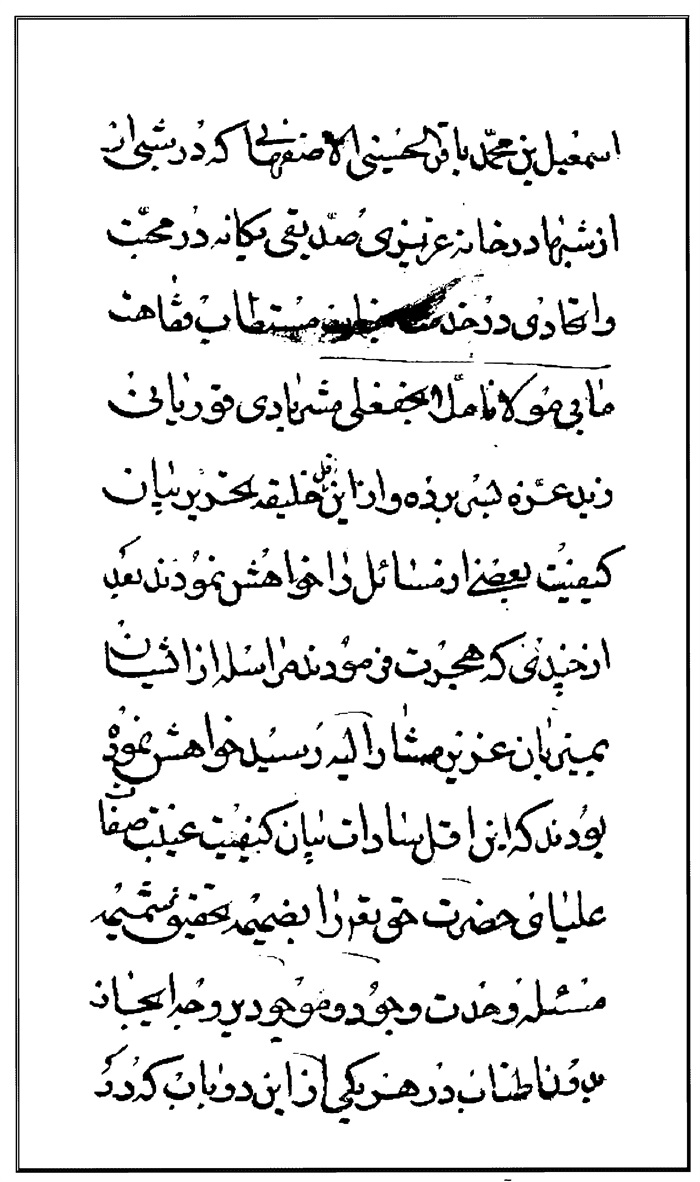 اسمعیل بن محمد باقر الحسینی الاصفهانی که در شبی از
از شبها در خانه عزیزی صدیقی یکانه در محبت
واتحادی در خدمت مستطاب فقاهت
مابی مولانا ملا نجفعلی
زید عزه بسر برده و از این اقل خلیقه تحریر بیان
کیفیت بعضی از مسائل را خواهش نمودند بعد
از چندی که هجرت فرمودند مراسله از ایشان
بمیزبان عزیز مشار الیه رسید خواهش نموده
بودند که این اقل سادات بیان کیفیت عینیت صفات
علیای حضرت حق تعم را بضمیمه تحقیق تتمیمه
مسئله وحدت وجود و موجود بر وجه ایجاز
بدون اطناب در هر یکی از این دو باب که در